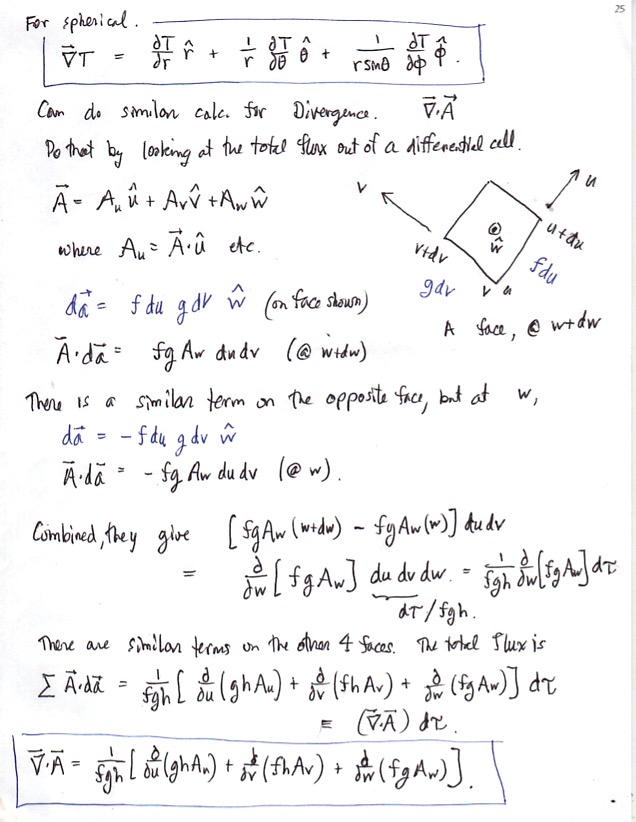 25
For spherical.
∇⃗T = ∂T/∂r r̂ + 1/r ∂T/∂θ θ̂ + 1/(r sinθ) ∂T/∂φ φ̂.
Can do similar calc. for Divergence. ∇⃗·A⃗
Do that by looking at the total flux out of a differential cell.
A⃗ = Au û + Av v̂ + Aw ŵ
where Au = A⃗·û etc.
v
u
ŵ
v+dv
u+du
gdv
v u
fdu
A face, @ w+dw
da⃗ = f du g dv ŵ (on face shown)
A⃗·da⃗ = fg Aw du dv (@ w+dw)
There is a similar term on the opposite face, but at w,
da⃗ = - f du g dv ŵ
A⃗·da⃗ = - fg Aw du dv (@ w).
Combined, they give [fgAw (w+dw) - fgAw(w)] du dv
= ∂/∂w [fgAw] du dv dw. = 1/fgh ∂/∂w [fgAw] dτ
dτ/fgh.
There are similar terms on the other 4 faces. The total flux is
Σ A⃗·da⃗ = 1/fgh [ ∂/∂u (ghAu) + ∂/∂v (fhAv) + ∂/∂w (fgAw)] dτ
≡ (∇⃗·A⃗) dτ.
∇⃗·A⃗ = 1/fgh [ ∂/∂u (ghAu) + ∂/∂v (fhAv) + ∂/∂w (fgAw)].